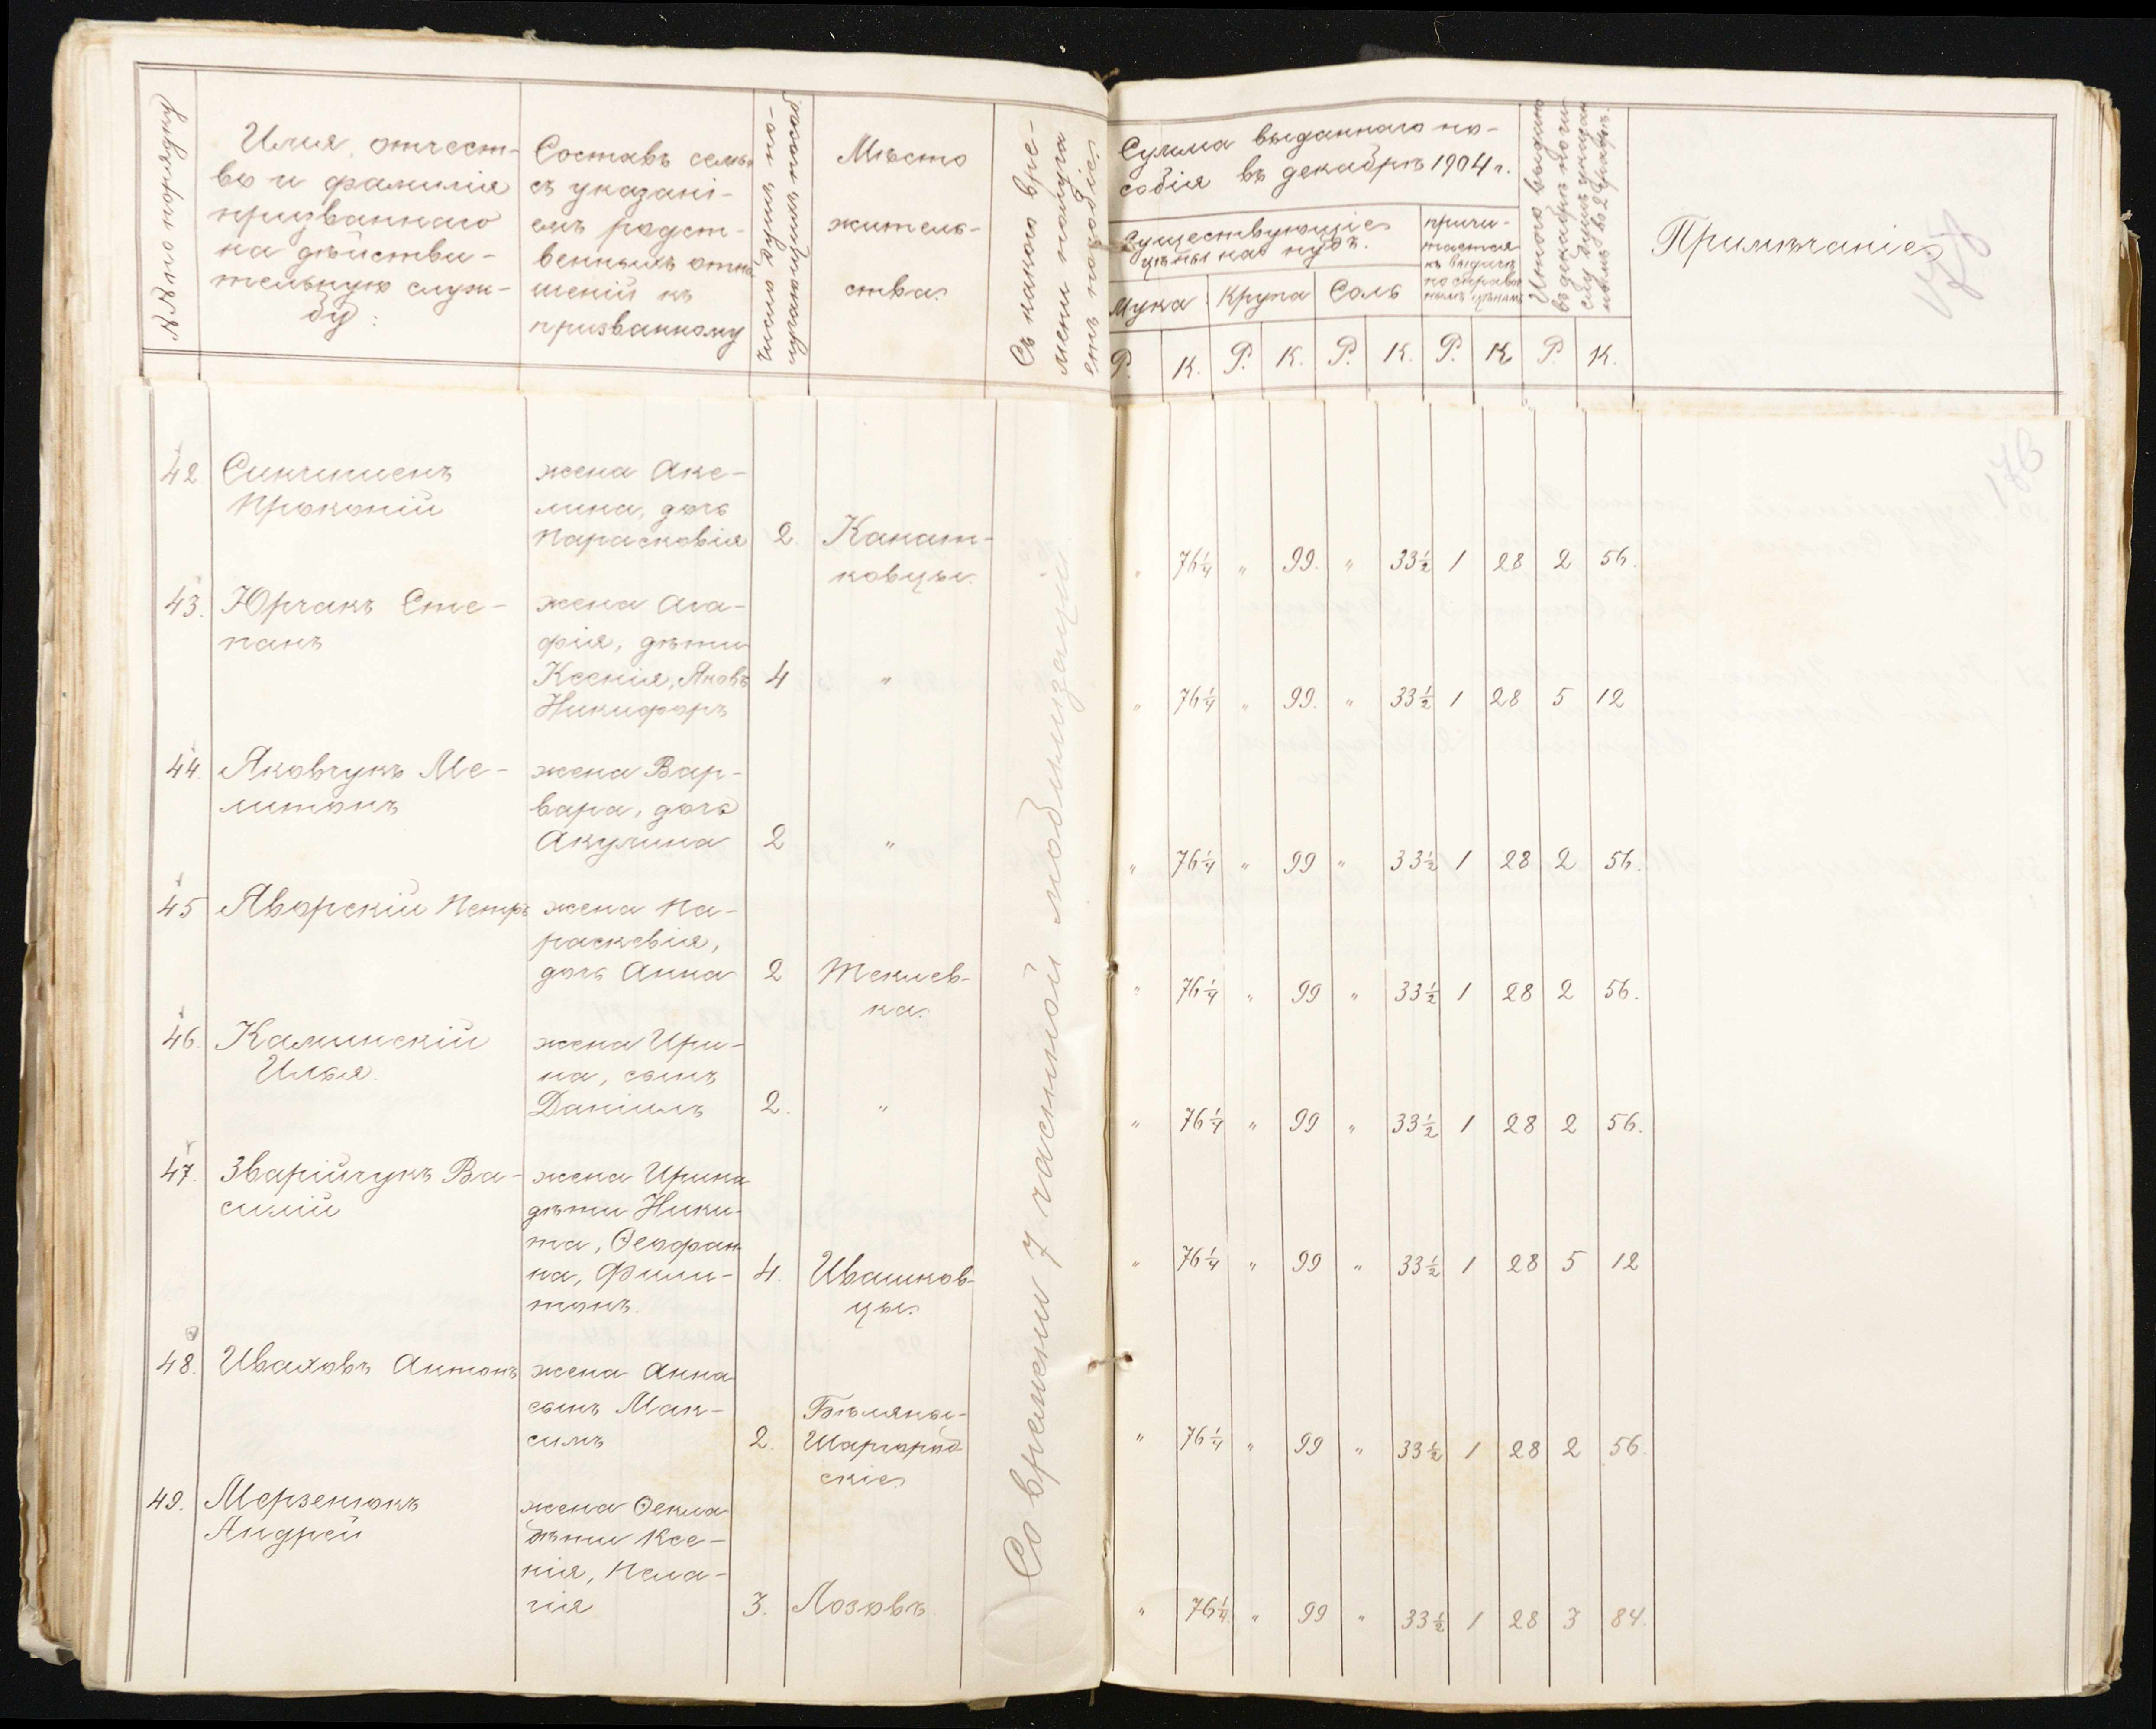 №№ по порядку
Имя, отчест-
во и фамилія
призваннаго
на дѣйстви-
тельную служ-
бу:
Составъ семьи
съ указані-
емъ родст-
венныхъ отно
шеній къ
призванному
Число душъ по-
Мѣсто
житель-
ства.
Съ какого вре-
мени получа
етъ пособіе
Сумма выданнаго по-
собія въ декабрѣ 1904 г.
Существующіе
цѣны на пудъ.
Мука
Крупа
Соль
причи-
тается
къ выдачѣ
по справоч
нымъ цѣнамъ
Итого выдано
въ декабрѣ по чи
слу душъ
Примѣчаніе
Р. К. Р. К. Р. К. Р. К Р. К.
178
176
42. Синчишенъ
Прокопій
жена Аксе-
лина, дочь
Парасковія 2 Канат-
ковцы.
„ 76¼ „ 99. „ 33½ 1 28 2 56.
43. Юрчакъ Сте-
панъ
жена Ага-
фія, дѣти
Ксенія, Яковъ 4 „
Никифоръ
„ 76¼ „ 99. „ 33½ 1 28 5 12
44. Яковчукъ Ме-
литонъ
жена Вар-
вара, дочь
Акулина 2 „
„ 76¼ „ 99 „ 33½ 1 28 2 56.
45 Яворскій Петръ
жена Па-
раскевія,
дочь Анна 2 Теклев-
ка.
„ 76¼ „ 99 „ 33½ 1 28 2 56.
46. Калинскій
Илья.
жена Ири-
на, сынъ
Даніилъ 2. „
„ 76¼ „ 99 „ 33½ 1 28 2 56.
47. Зварійчукъ Ва-
силій
жена Ирина
дѣти Ники-
та, Ѳеофан
на, Фили- 4. Ивашков-
монъ. цы.
„ 76¼ „ 99 „ 33½ 1 28 5 12
48. Иваховъ Антонъ
жена Анна
сынъ Мак-
симъ 2. Бѣляны-
Шаргород
скіе
„ 76¼ „ 99 „ 33½ 1 28 2 56.
49. Мерзенюкъ
Андрей
жена Ѳекла
дѣти Ксе-
нія, Пела-
гія 3. Лозовъ
„ 76¼ „ 99 „ 33½ 1 28 3 84.
Со времени 7 частной мобилизаціи